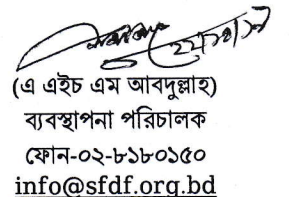 (এ এইচ এম আবদুল্লাহ)
ব্যবস্থাপনা পরিচালক
ফোন-০২-৮১৮০১৫০
info@sfdf.org.bd